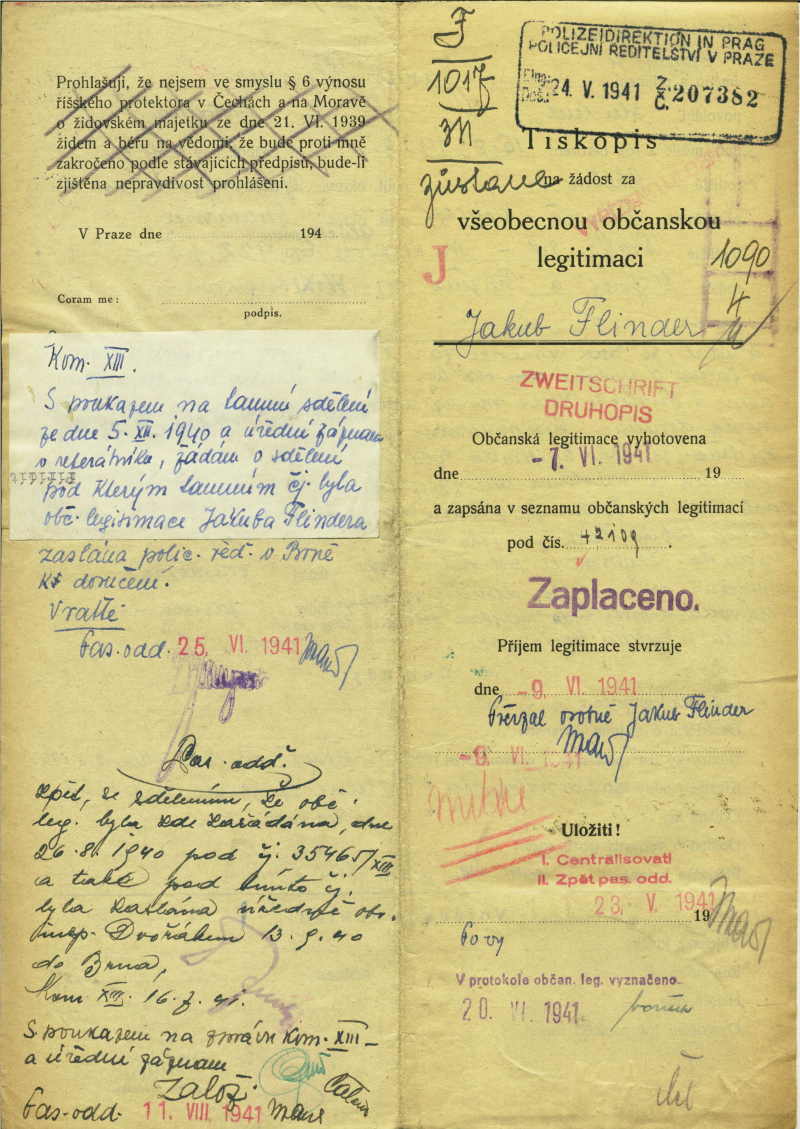 Prohlašuji, že nejsem ve smyslu § 6 výnosu
říšského protektora v Čechách a na Moravě
o židovském majetku ze dne 21. VI. 1939
židem a beru na vědomí, že bude proti mně
zakročeno podle stávajících předpisů, bude-li
zjištěna nepravdivost prohlášení.
V Praze dne 194
Coram me:
podpis.
Kom. XIII.
S poukazem na tamní sdělení
ze dne 5. XII. 1940 a úřední záznam
v referátníku, žádám o sdělení
pod kterým tamním čj. byla
obč. legitimace Jakuba Flindera
zaslána polic. řed. v Brně
k doručení.
Vraťte
Pas. odd. 25. VI. 1941
Pas. odd.
Zpět, se sdělením, že obč.
leg. byla zde zažádána, dne
26.8.1940 pod čj. 35465/XIII
a také pod tímto čj.
byla zaslána úředně obv.
insp. Dvořákem 13.9.40
do Brna,
Kom XIII. 16.7.41.
S poukazem na zprávu Kom. XIII
a úřední záznam
Založ.
Pas. odd. 11. VIII. 1941
F
1017
zůstane
POLIZEIDIREKTION IN PRAG
POLICEJNÍ ŘEDITELSTVÍ V PRAZE
Eing.
Došl. 24. V. 1941 Z. Č. 207382
Tiskopis
na žádost za
všeobecnou občanskou
legitimaci
J
1090
4
Jakub Flinder
ZWEITSCHRIFT
DRUHOPIS
Občanská legitimace vyhotovena
-7. VI. 1941
dne 19
a zapsána v seznamu občanských legitimací
pod čís. 42109.
Zaplaceno.
Příjem legitimace stvrzuje
dne -9. VI. 1941
Převzal osobně Jakub Flinder
-9. VI. 1941
Uložiti!
I. Centralisovati
II. Zpět pas. odd.
23. V. 1941
19
V protokole občan. leg. vyznačeno.
20. VI. 1941